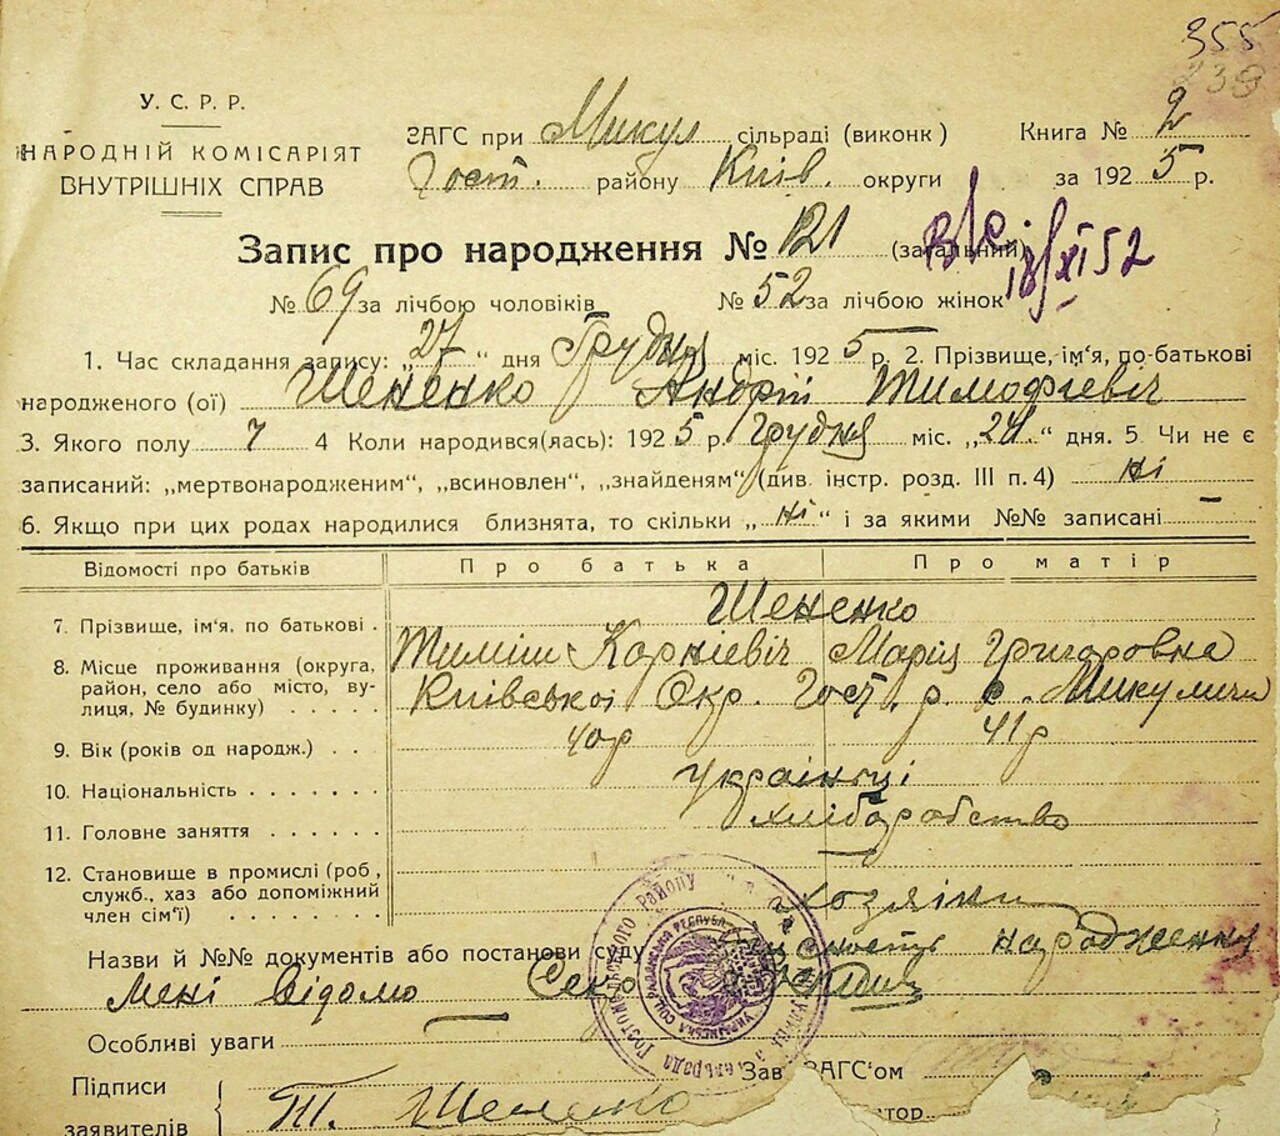 355
У. С. Р. Р.
НАРОДНІЙ КОМІСАРІЯТ
ВНУТРІШНІХ СПРАВ
ЗАГС при Микул сільраді (виконк) Книга № 2
Гост. району Київ. округи за 1925 р.
Запис про народження № 121 (загальний)
18/XI 52
№ 69 за лічбою чоловіків № 52 за лічбою жінок
1. Час складання запису: „27“ дня Грудня міс. 1925 р. 2. Прізвище, ім'я, по-батькові
народженого (ої) Шененко Андрій Тимофієвіч
3. Якого полу ч 4 Коли народився(лась): 1925 р. Грудня міс. „24.“ дня. 5. Чи не є
записаний: „мертвонародженим“, „всиновлен“, „знайденям“ (див. інстр. розд. III п. 4) ні
6. Якщо при цих родах народилися близнята, то скільки „ні“ і за якими №№ записані —
Відомості про батьків Про батька Про матір
Шененко
7. Прізвище, ім'я, по батькові . Тиміш Карнієвіч Марія Григоровна
8. Місце проживання (округа, район, село або місто, вулиця, № будинку) . . . . Київської Окр. Гост. р. с. Микуличи
9. Вік (років од народж.) . . . 40 р 41 р
10. Національність . . . . . . . Українці
11. Головне заняття . . . . . . хліборобство
12. Становище в промислі (роб, служб., хаз або допоміжний член сім'ї) . . . . . . . . хозяіни
Назви й №№ документів або постанови суду народження
мені відомо Секр
Особливі уваги
Підписи
заявителів
Т. Шененко
Зав ЗАГС'ом
атор